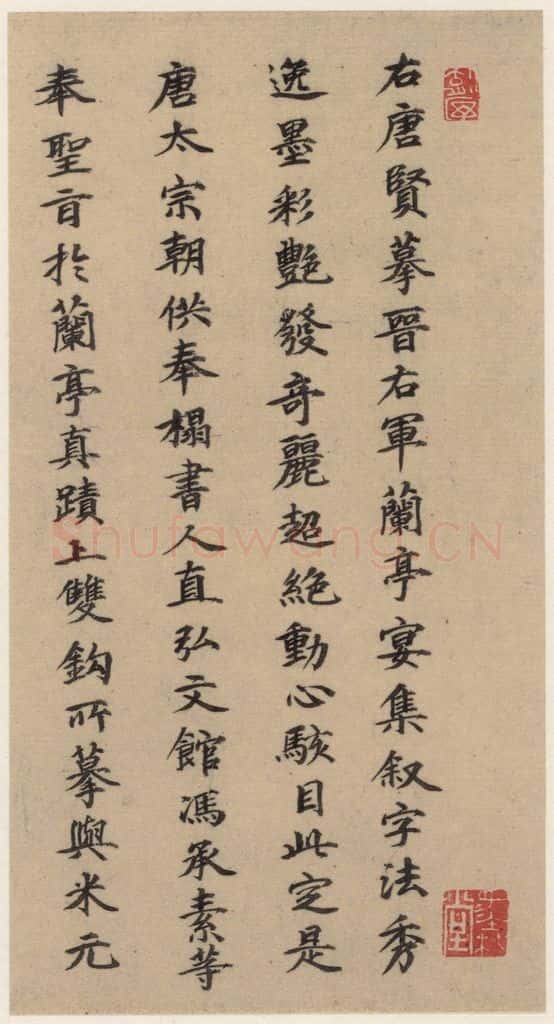 右唐賢摹晉右軍蘭亭宴集叙字法秀
逸墨彩艷發竒麗超絶動心駭目此定是
唐太宗朝供奉榻書人直弘文館馮承素等
奉聖旨於蘭亭真蹟上雙鈎所摹與米元
Shufawang.CN